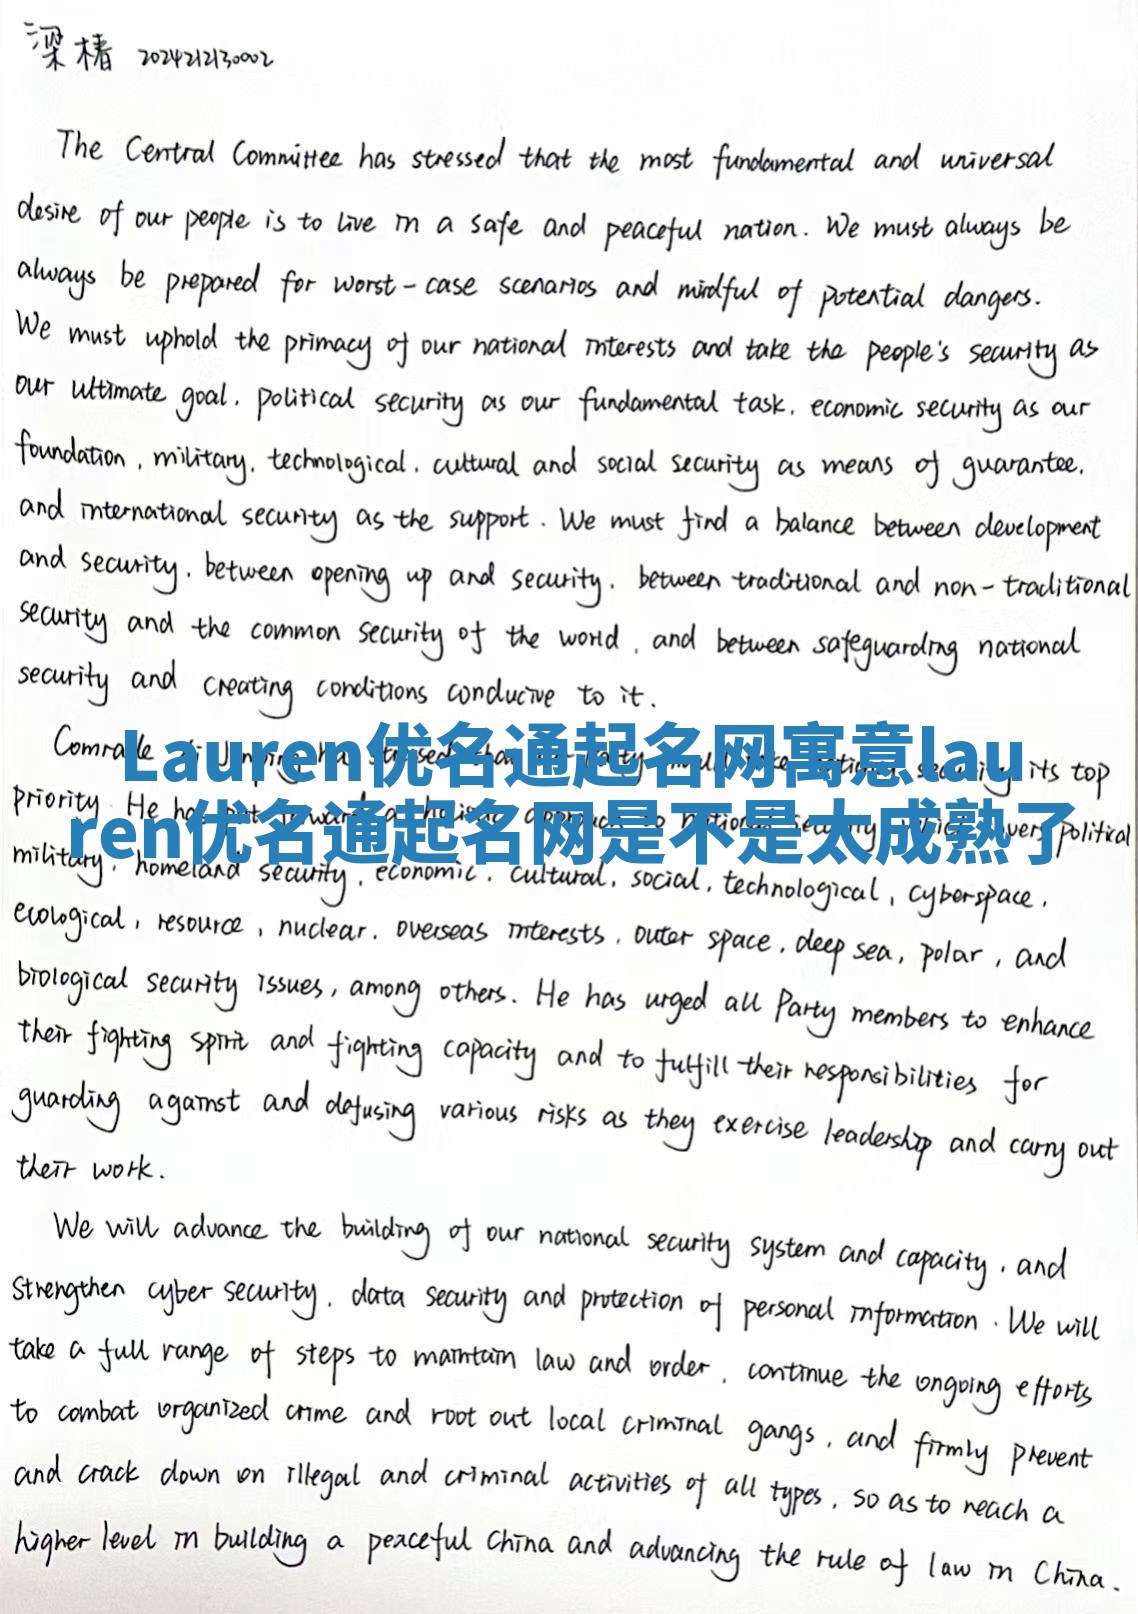 梁椿 2024212130002
The Central Committee has stressed that the most fundamental and universal
desire of our people is to live in a safe and peaceful nation. We must always be
always be prepared for worst-case scenarios and mindful of potential dangers.
We must uphold the primacy of our national interests and take the people's security as
our ultimate goal, political security as our fundamental task, economic security as our
foundation, military, technological, cultural and social security as means of guarantee,
and international security as the support. We must find a balance between development
and security, between opening up and security, between traditional and non-traditional
security and the common security of the world, and between safeguarding national
security and creating conditions conducive to it.
Comrade its top
Lauren优名通起名网寓意lau
priority. He has
ren优名通起名网是不是太成熟了
political
military, homeland security, economic, cultural, social, technological, cyberspace,
ecological, resource, nuclear, overseas interests, outer space, deep sea, polar, and
biological security issues, among others. He has urged all Party members to enhance
their fighting spirit and fighting capacity and to fulfill their responsibilities for
guarding against and defusing various risks as they exercise leadership and carry out
their work.
We will advance the building of our national security system and capacity, and
strengthen cyber security, data security and protection of personal information. We will
take a full range of steps to maintain law and order, continue the ongoing efforts
to combat organized crime and root out local criminal gangs, and firmly prevent
and crack down on illegal and criminal activities of all types, so as to reach a
higher level in building a peaceful China and advancing the rule of law in China.